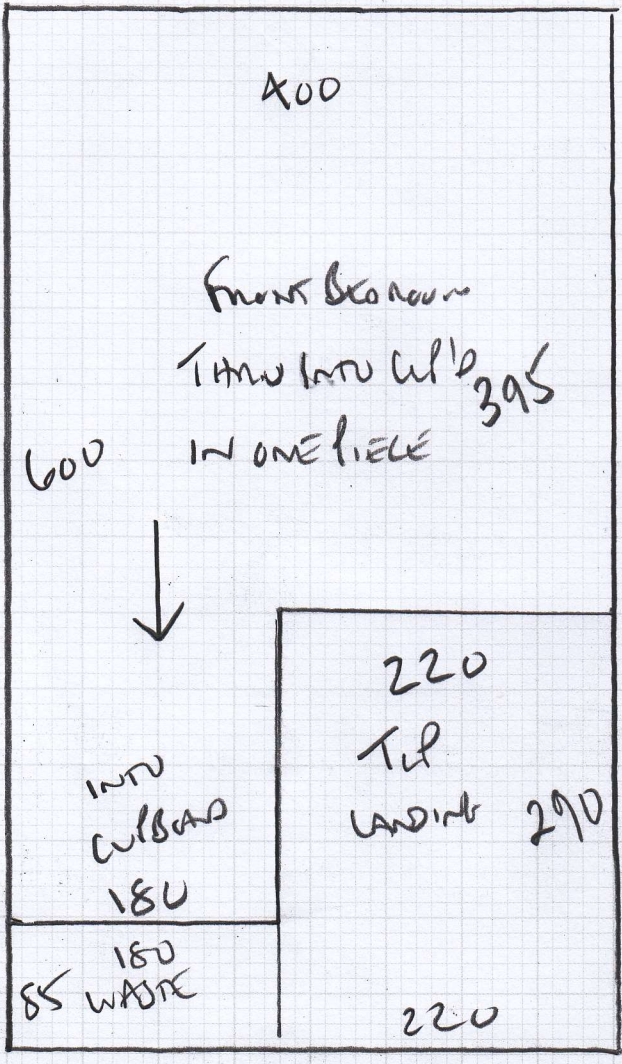 400
FRONT BEDROOM
THRU INTO CUP'D
395
IN ONE PIECE
600
220
TOP
LANDING
290
INTO
CUPBOARD
180
180
85 WASTE
220